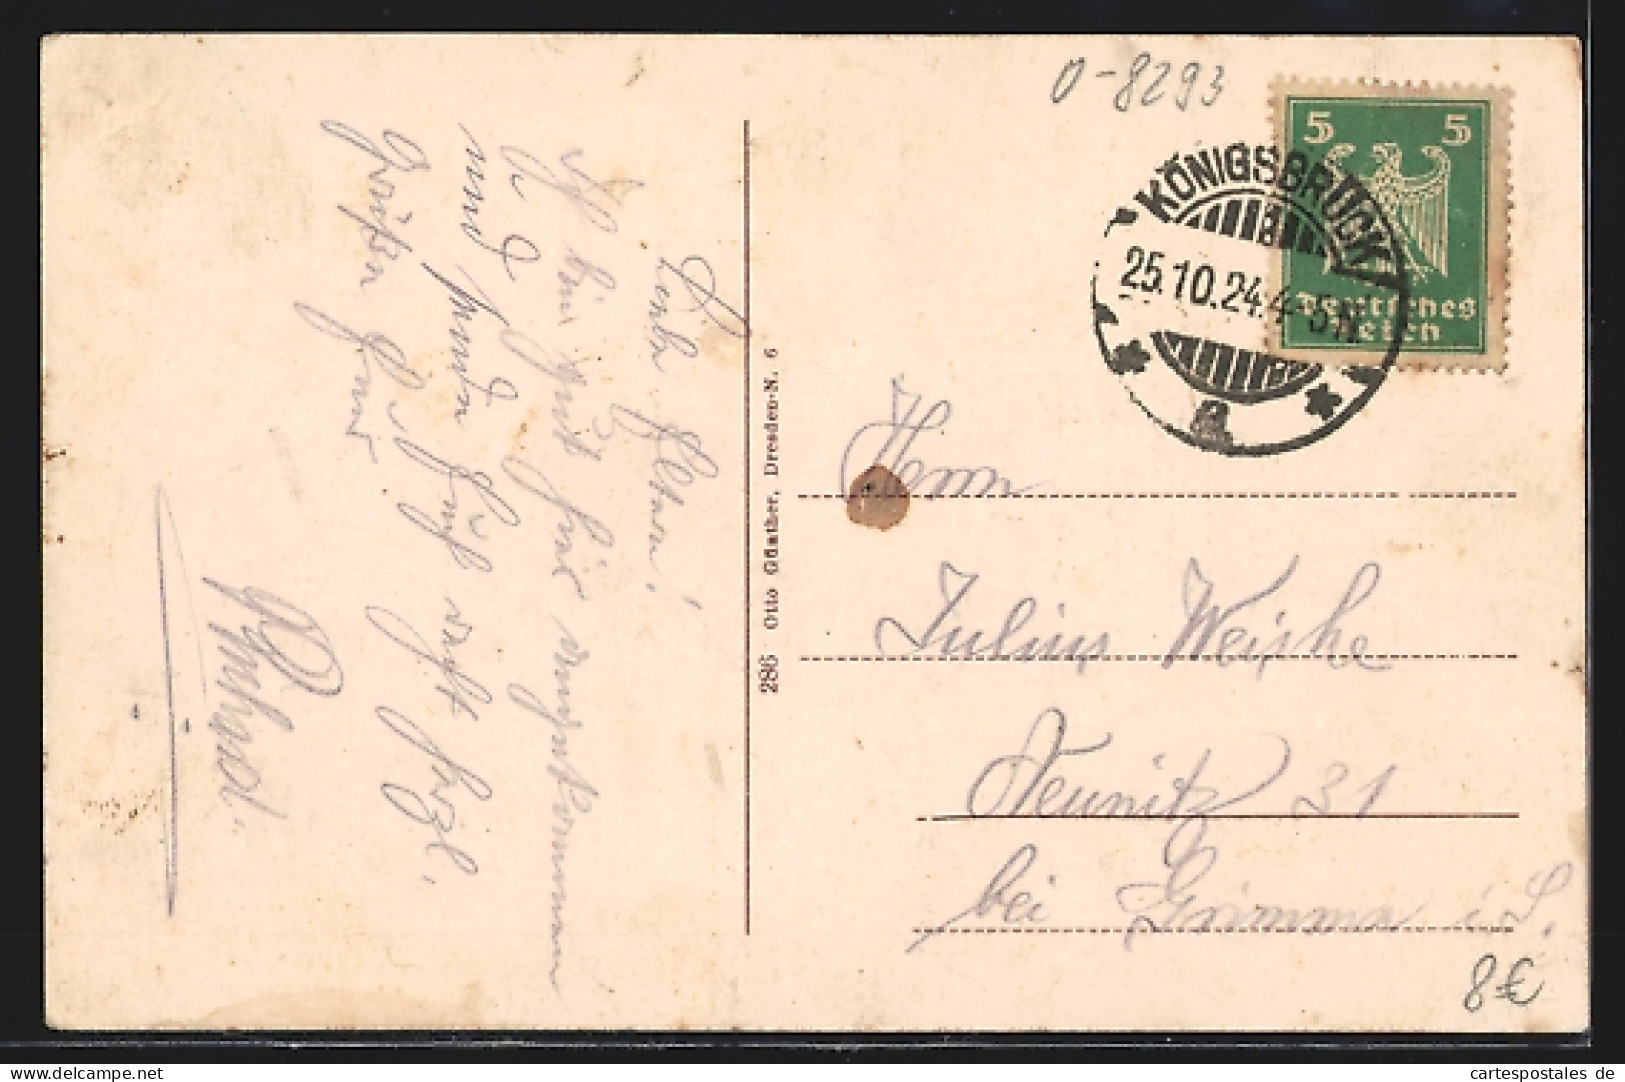 0-8293
5 5
Deutsches
Reich
KÖNIGSBRÜCK
25.10.24.4-5N
a
Liebe Eltern!
Ich bin gut hier angekommen
und
Grüßen
286 Otto Günther, Dresden-N. 6
Herrn
Julius Weiske
Neunitz 31
bei Grimma i. S.
8€
www.delcampe.net
cartespostales de